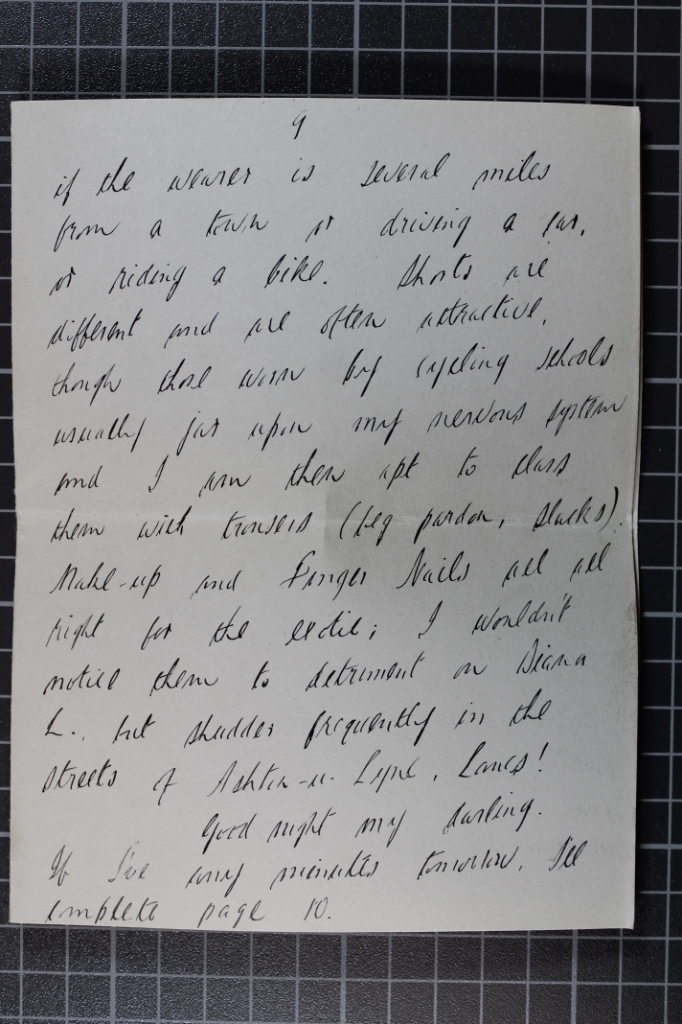 9
if the wearer is several miles
from a town or driving a car,
or riding a bike. Shorts are
different and are often attractive,
though those worn by cycling schools
usually jar upon my nervous system
and I am then apt to class
them with trousers (beg pardon, slacks).
Make-up and Finger Nails are all
right for the exotic; I wouldn't
notice them to detriment on Diana
L., but shudder frequently in the
streets of Ashton-u-Lyne, Lancs!
Good night my darling.
If I've any minutes tomorrow, I'll
complete page 10.